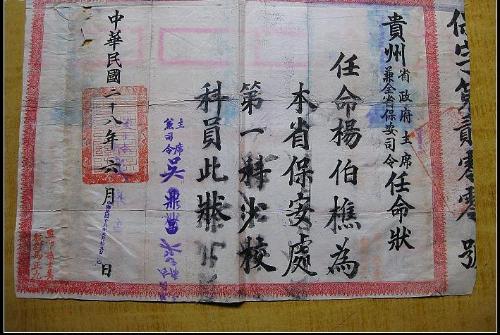 保安第貳零零號
貴州省政府主席兼全省保安司令任命狀
任命楊伯樵為
本省保安處
第一科少校
科員此狀
主席兼司令吳鼎昌
中華民國二十八年六月日